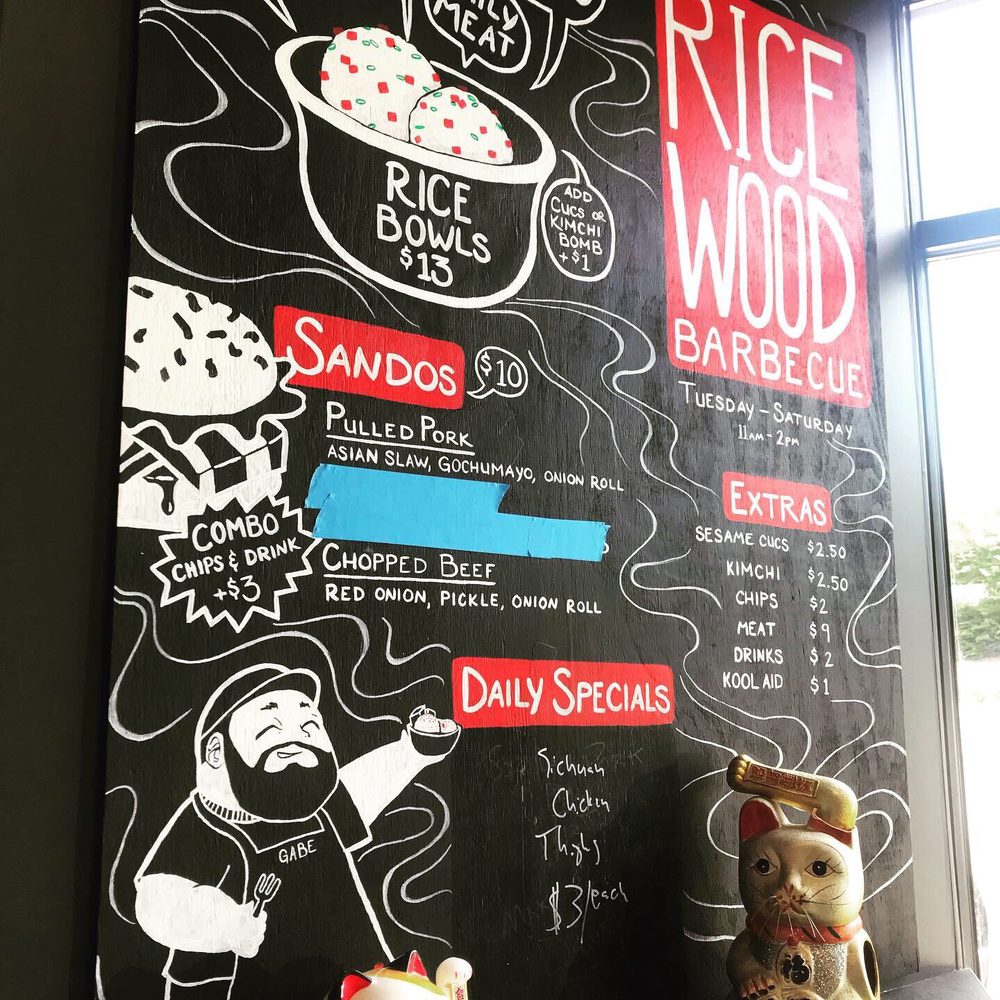 MEAT
RICE
BOWLS
$13
ADD
CUCS OR
KIMCHI
BOMB
+$1
RICE
WOOD
BARBECUE
TUESDAY - SATURDAY
11AM - 2PM
SANDOS
$10
PULLED PORK
ASIAN SLAW, GOCHUMAYO, ONION ROLL
CHOPPED BEEF
RED ONION, PICKLE, ONION ROLL
COMBO
CHIPS & DRINK
+$3
EXTRAS
SESAME CUCS $2.50
KIMCHI $2.50
CHIPS $2
MEAT $9
DRINKS $2
KOOL AID $1
DAILY SPECIALS
Sichuan
Chicken
Thighs
$3/each
GABE
福